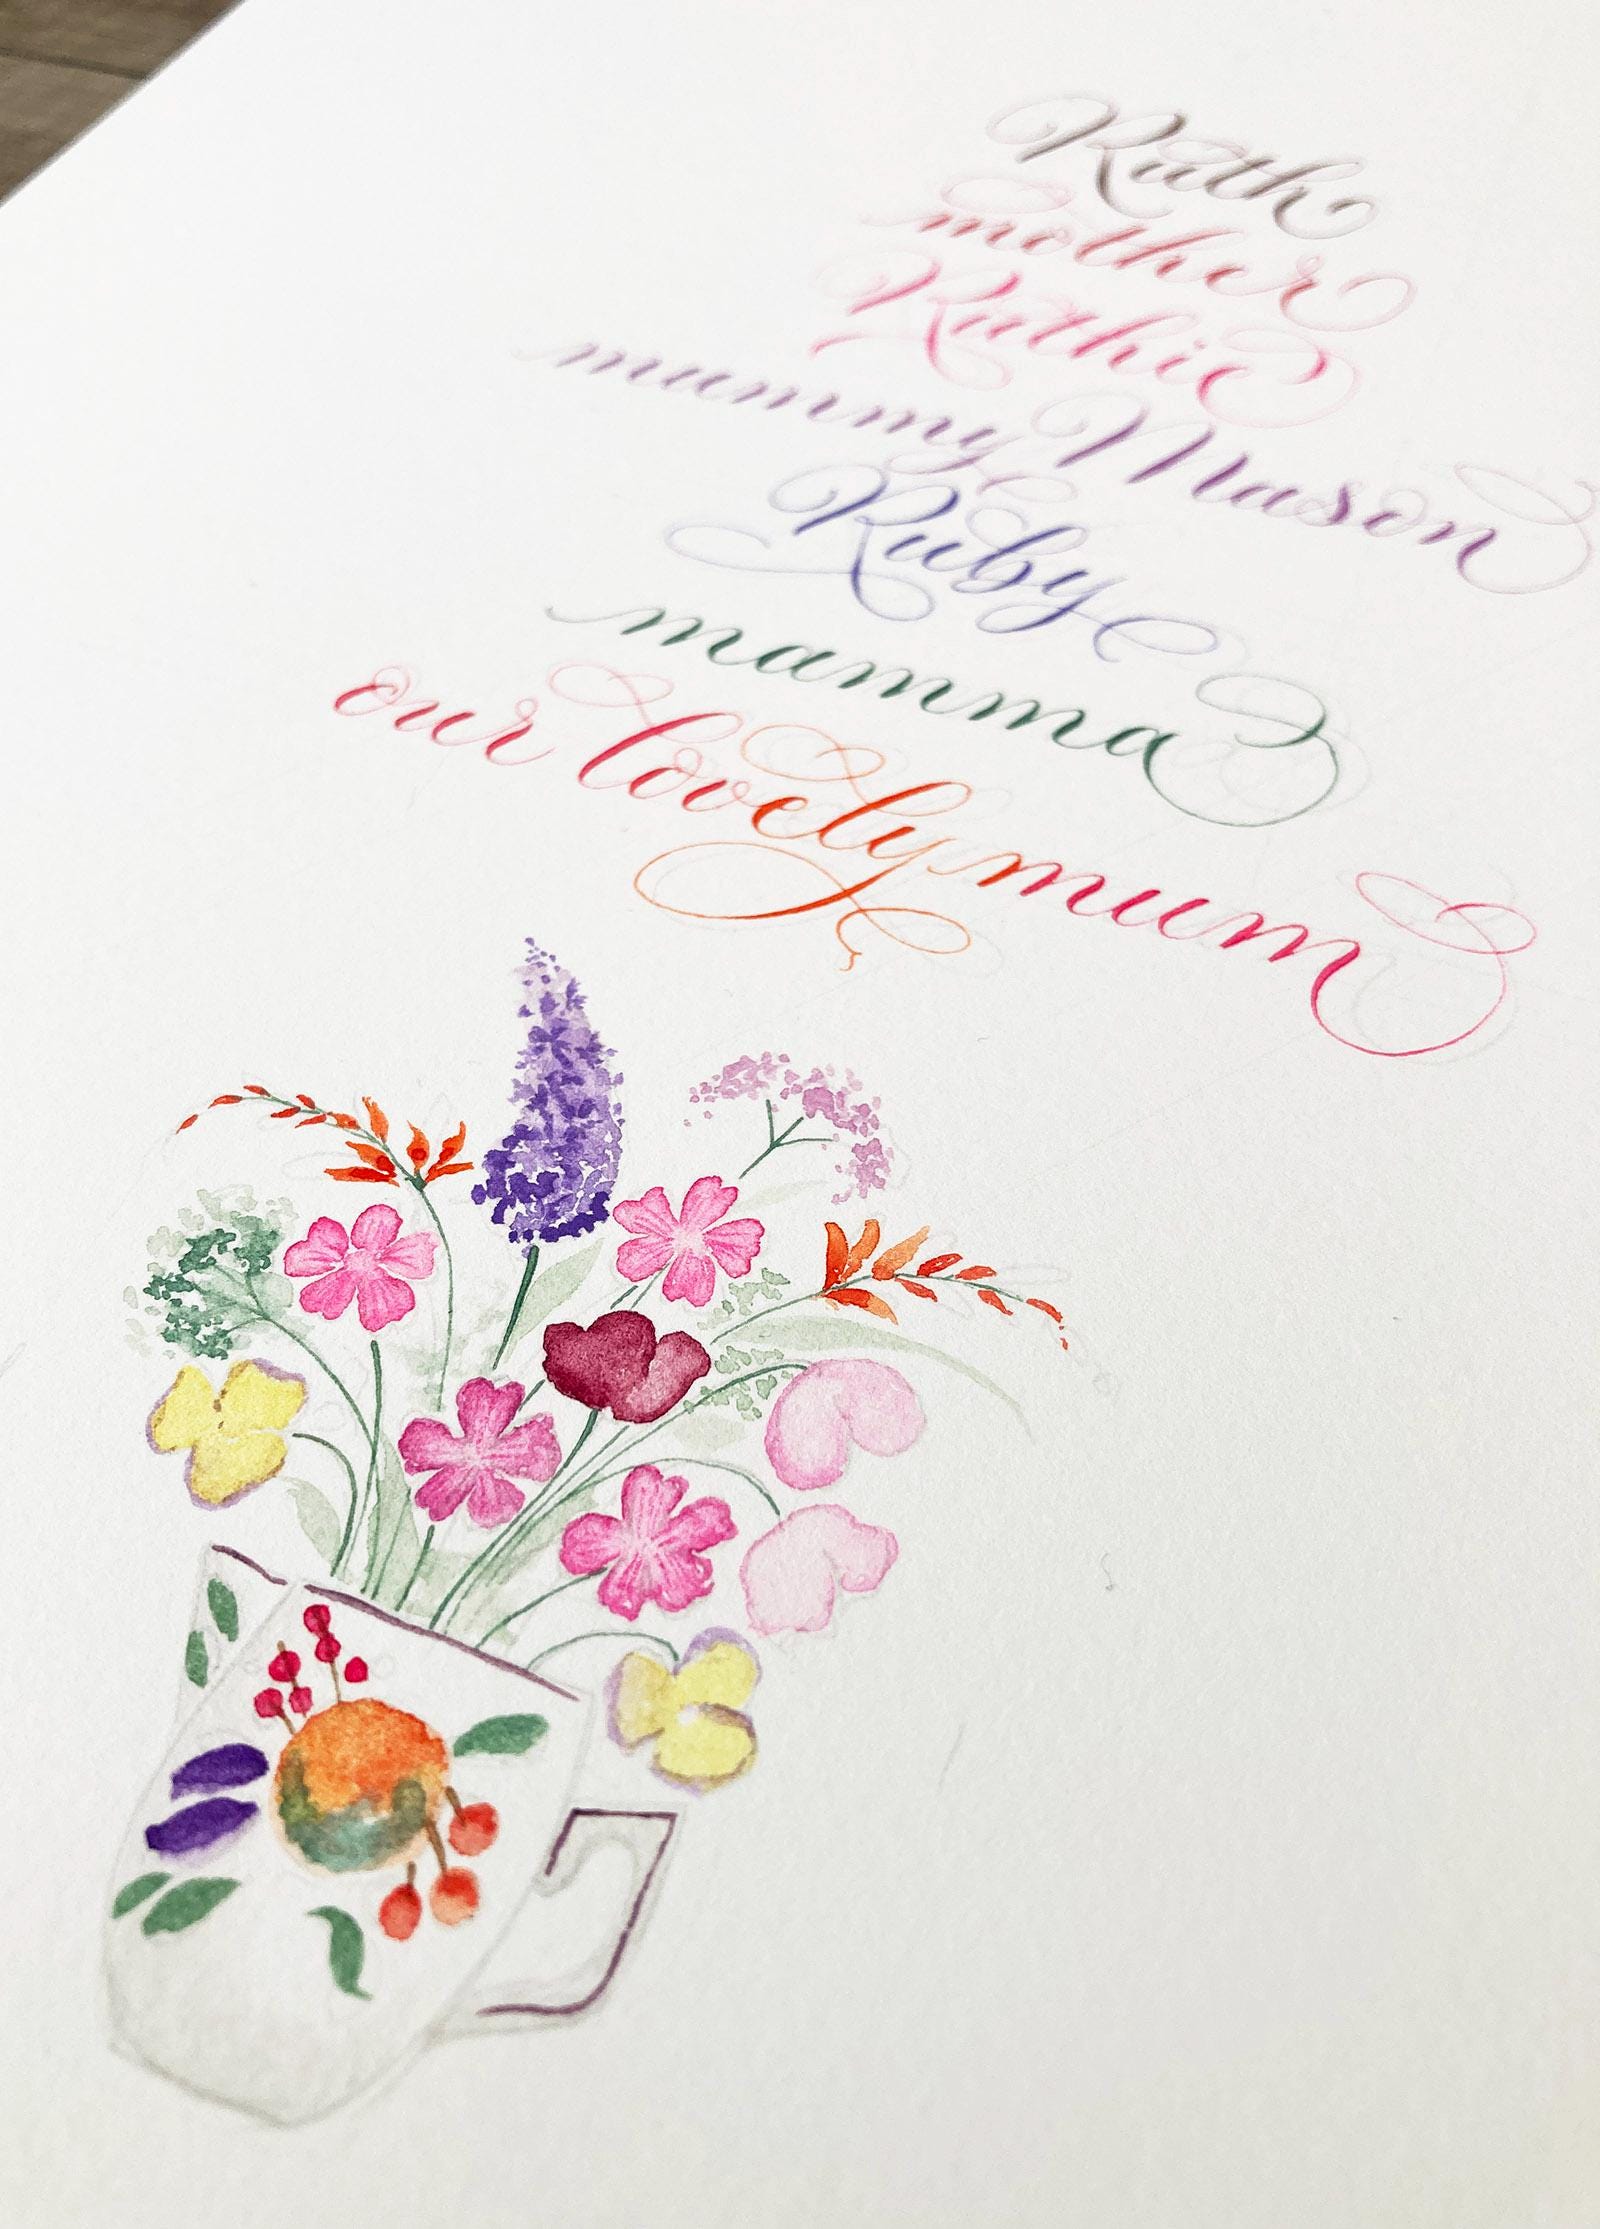 Ruth
mother
Ruthie
mummy Mason
Ruby
mamma
our lovely mum